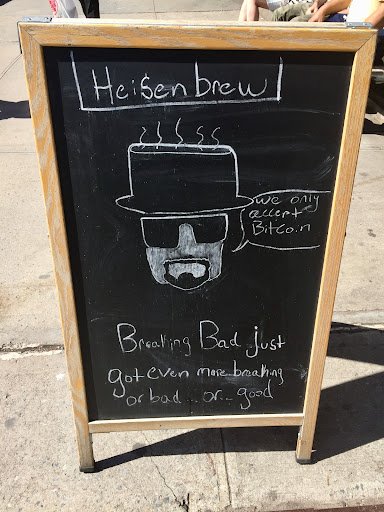 Heisenbrew
we only
accept
Bitcoin
Breaking Bad just
got even more breaking
or bad... or... good